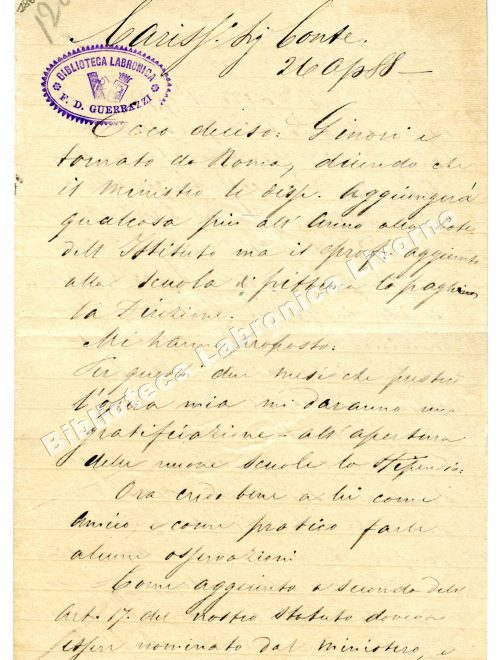 Cariss. Sig Conte.
26 Ap 88 —
BIBLIOTECA LABRONICA
F. D. GUERRAZZI
Ecco deciso: Ginori è
tornato da Roma, dicendo che
il Ministro le disse. Aggiungerà
qualcosa più all'anno alla
dell'Istituto ma il prof. aggiunto
alla scuola di pittura lo paghino
la Direzione.
Mi hanno proposto:
Per questi due mesi che presterò
l'opera mia mi daranno una
gratificazione - all'apertura
delle nuove scuole lo stipendio:
Ora credo bene a lei come
amico e come pratico farle
alcune osservazioni
Come aggiunto a seconda dell'
Art. 17. del nostro statuto doveva
essere nominato dal Ministero, e
Biblioteca Labronica Livorno